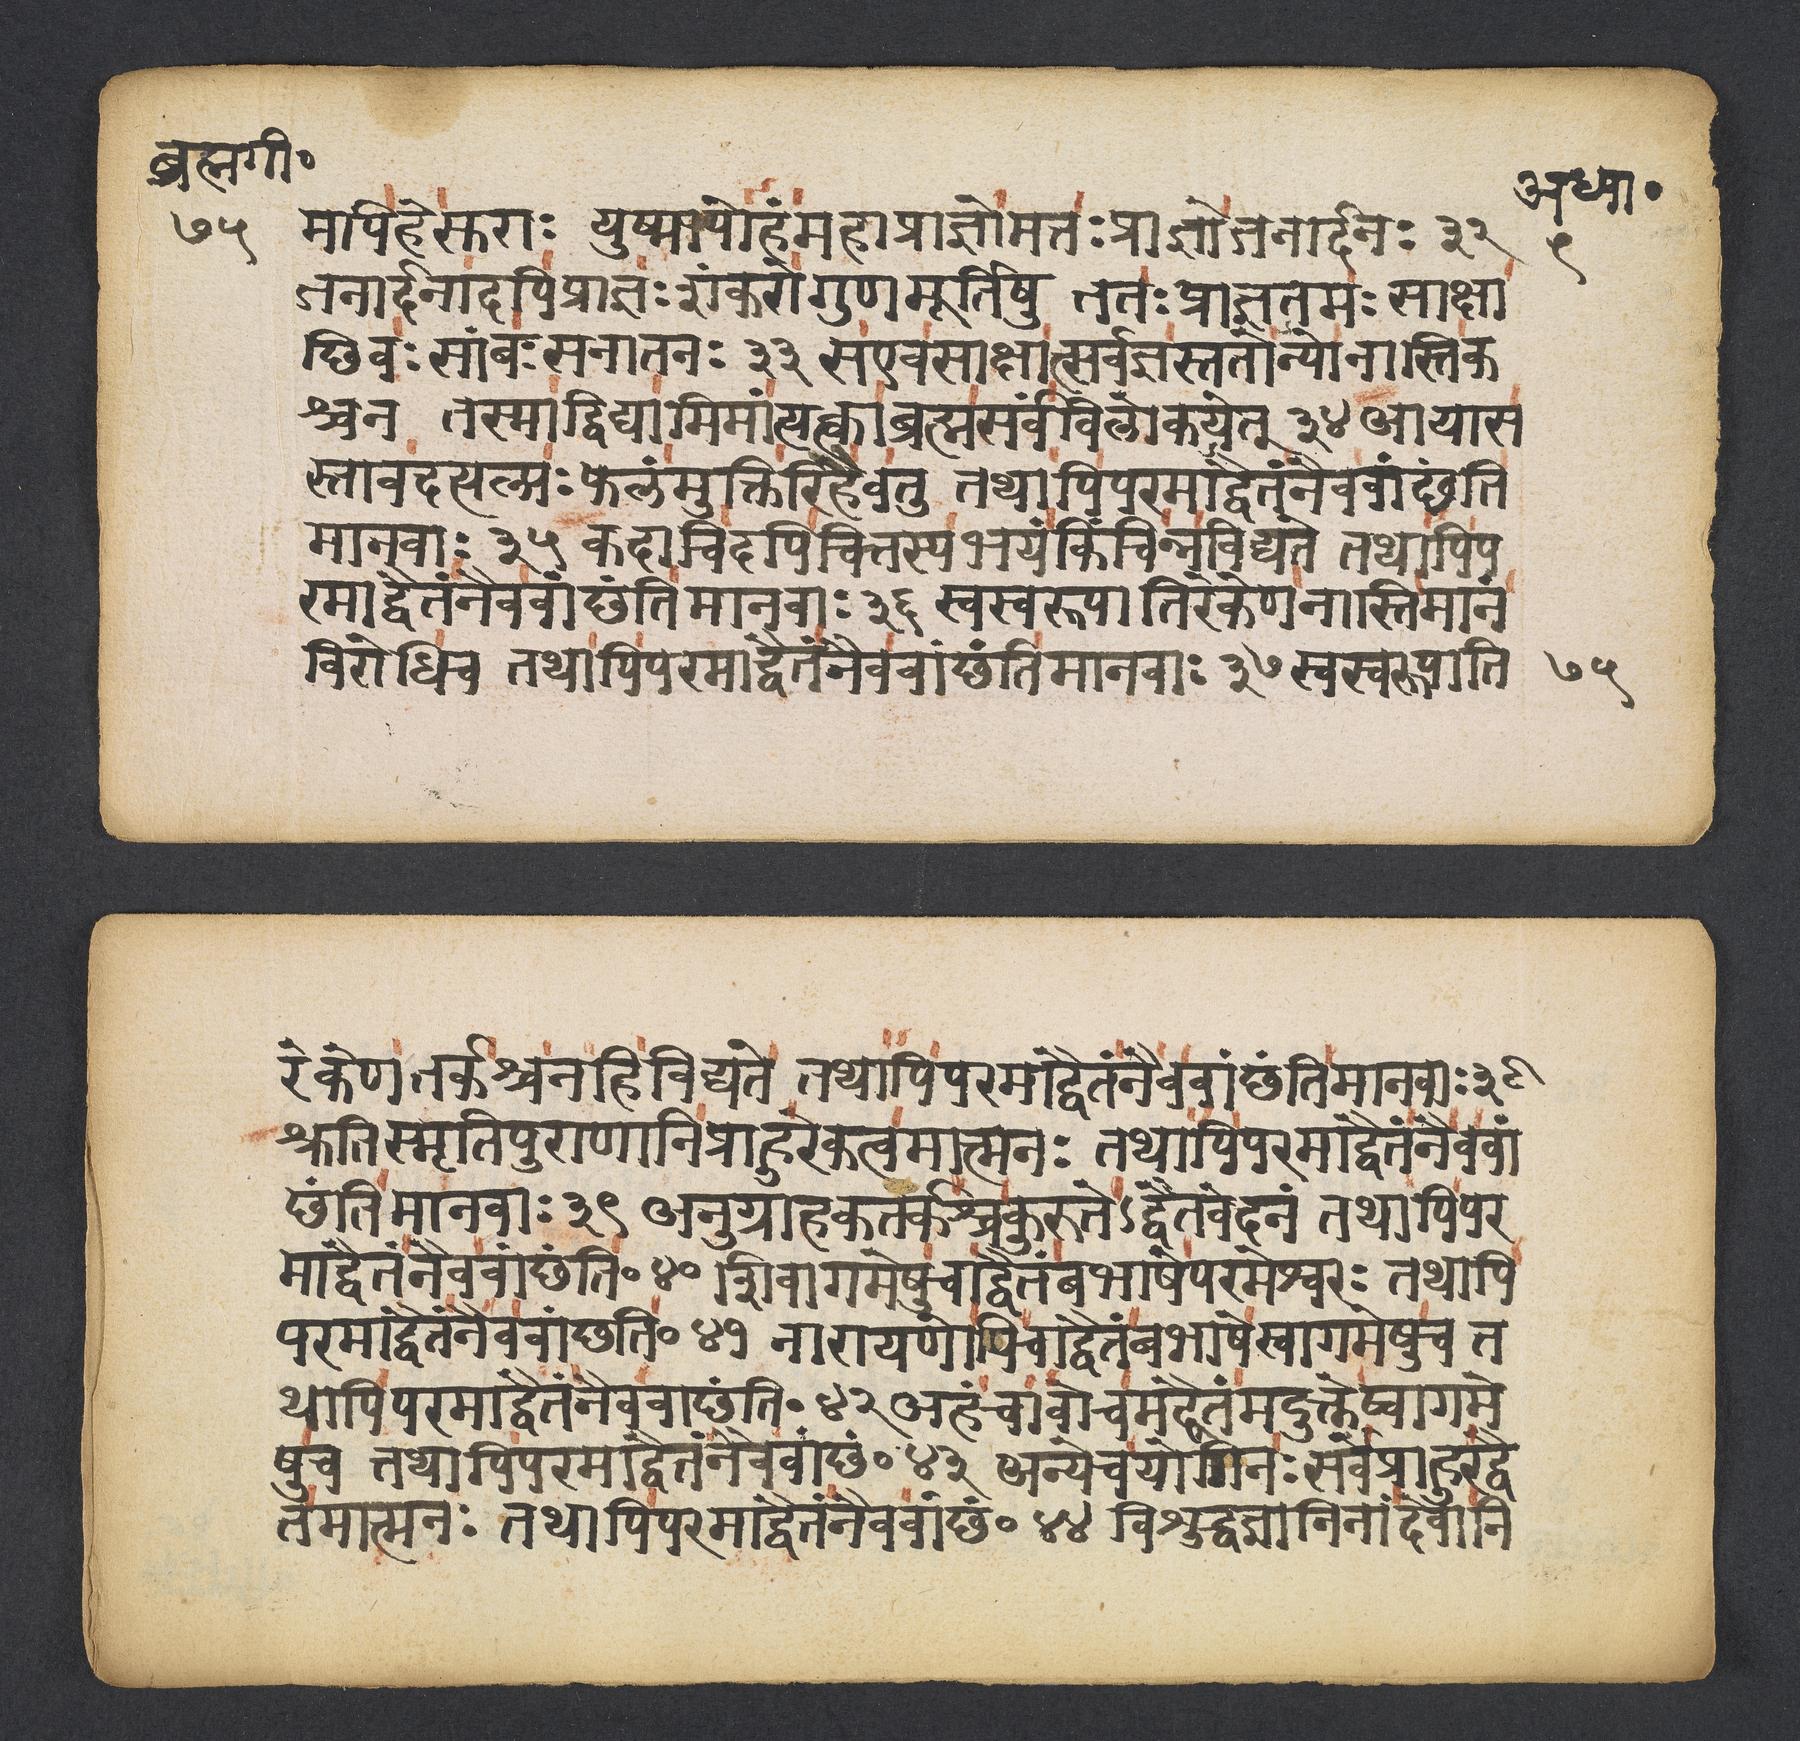 ब्रह्मगी॰
अध्या॰
७५
९
मापिहेसुराः युष्माकमहंमहाप्राज्ञोमत्तःप्राज्ञोजनार्दनः ३२
जनार्दनादपिप्राज्ञःशंकरोगुणमूर्तिषु ततःप्राज्ञतमःसाक्षा
छिवःसांबःसनातनः ३३ सएवसाक्षात्सर्वज्ञस्ततोन्योनास्तिक
श्चन तस्माद्विद्यामिमांत्यत्काब्रह्मसर्वंविलोकयेत् ३४ आयास
स्तावदत्यल्पःफलंमुक्तिरिहैवतु तथापिपरमाद्वैतंनैववांछंति
मानवाः ३५ कदाचिदपिचित्तस्यभयंकिंचिन्नविद्यते तथापिप
रमाद्वैतंनैववांछंतिमानवाः ३६ स्वस्वरूपातिरेकेणनास्तिमानं
विरोधिच तथापिपरमाद्वैतंनैववांछंतिमानवाः ३७ स्वस्वरूपाति
७५
रेकेणतर्कश्चनहिविद्यते तथापिपरमाद्वैतंनैववांछंतिमानवाः ३८
श्रुतिस्मृतिपुराणानिप्राहुरेकत्वमात्मनः तथापिपरमाद्वैतंनैववां
छंतिमानवाः ३९ अनुग्राहकतर्कश्चकुरुतेऽद्वैतवेदनं तथापिपर
माद्वैतंनैववांछंति॰ ४० शिवागमेषुचाद्वैतंबभाषेपरमेश्वरः तथापि
परमाद्वैतंनैववांछति॰ ४१ नारायणोपिचाद्वैतंबभाषेस्वागमेषुच त
थापिपरमाद्वैतंनैववाछंति॰ ४२ अहंचावोचमद्वैतंमदुक्तेष्वागमे
षुच तथापिपरमाद्वैतंनैववांछं॰ ४३ अन्येचयोगिनःसर्वेप्राहुरद्वै
तमात्मनः तथापिपरमाद्वैतंनैववांछं॰ ४४ विशुद्धज्ञानिनांदेवानि